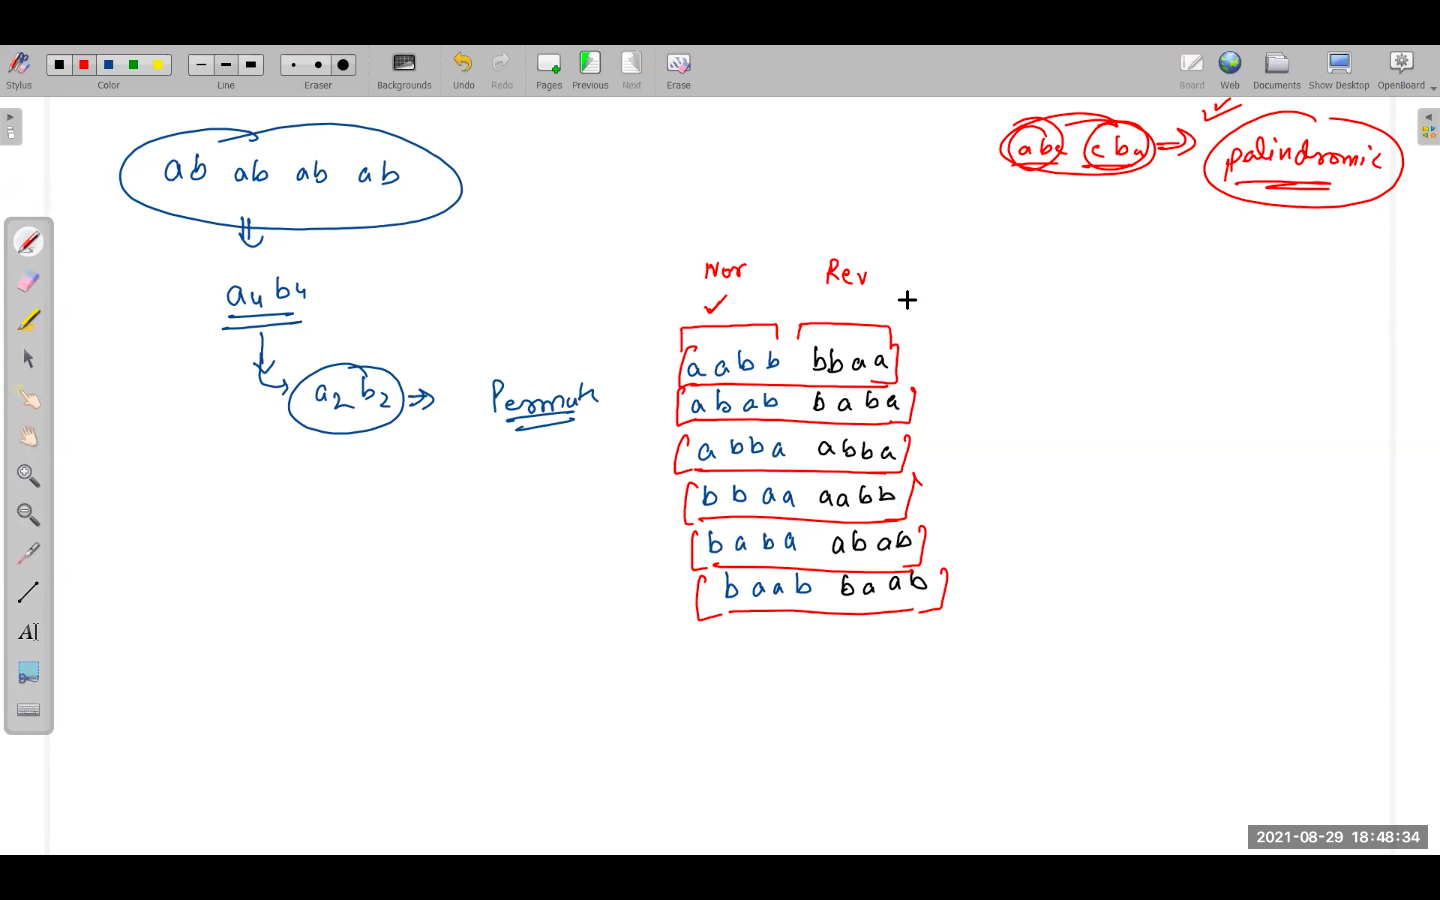 Stylus Color Line Eraser Backgrounds Undo Redo Pages Previous Next Erase Board Web Documents Show Desktop OpenBoard
ab ab ab ab
abc cba ⇒ palindromic
a4 b4
a2 b2 ⇒ Permute
Nor Rev
aabb bbaa
abab baba
abba abba
bbaa aabb
baba abab
baab baab
2021-08-29 18:48:34